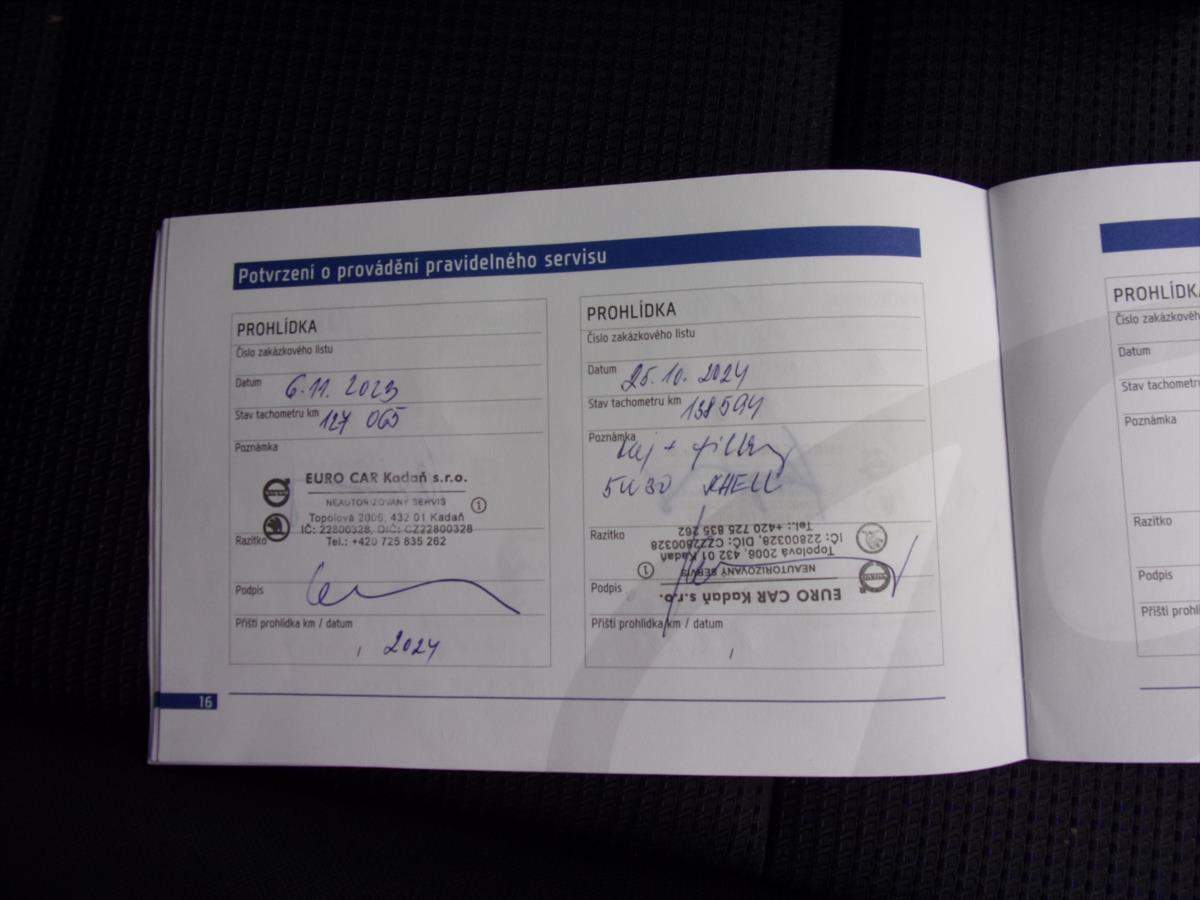 Potvrzení o provádění pravidelného servisu
PROHLÍDKA
Číslo zakázkového listu
Datum 6.11.2023
Stav tachometru km 127 065
Poznámka
EURO CAR Kadaň s.r.o.
NEAUTORIZOVANÝ SERVIS 1
Topolová 2006, 432 01 Kadaň
IČ: 22800328, DIČ: CZ22800328
Razítko
Tel.: +420 725 835 262
Podpis
Příští prohlídka km / datum
2024
PROHLÍDKA
Číslo zakázkového listu
Datum 25.10.2024
Stav tachometru km 138594
Poznámka
olej + filtry
5W30 SHELL
Razítko
EURO CAR Kadaň s.r.o.
NEAUTORIZOVANÝ SERVIS 1
Topolová 2006, 432 01 Kadaň
IČ: 22800328, DIČ: CZ22800328
Tel.: +420 725 835 262
Podpis
Příští prohlídka km / datum
16
Datum
Poznámka
Razítko
Podpis